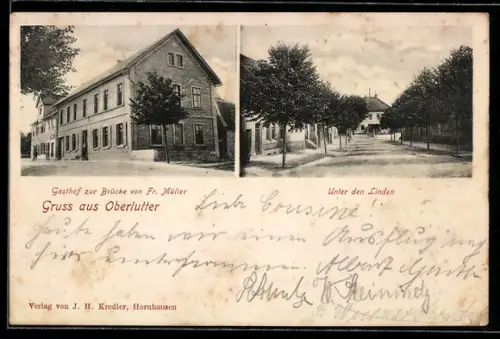 Gasthof zur Brücke von Fr. Müller
Unter den Linden
Gruss aus Oberlutter
Liebe Cousine!
Heute haben wir einen Ausflug nach
hier unternommen. Albert
W.
Verlag von J. H. Kredler, Hornhausen